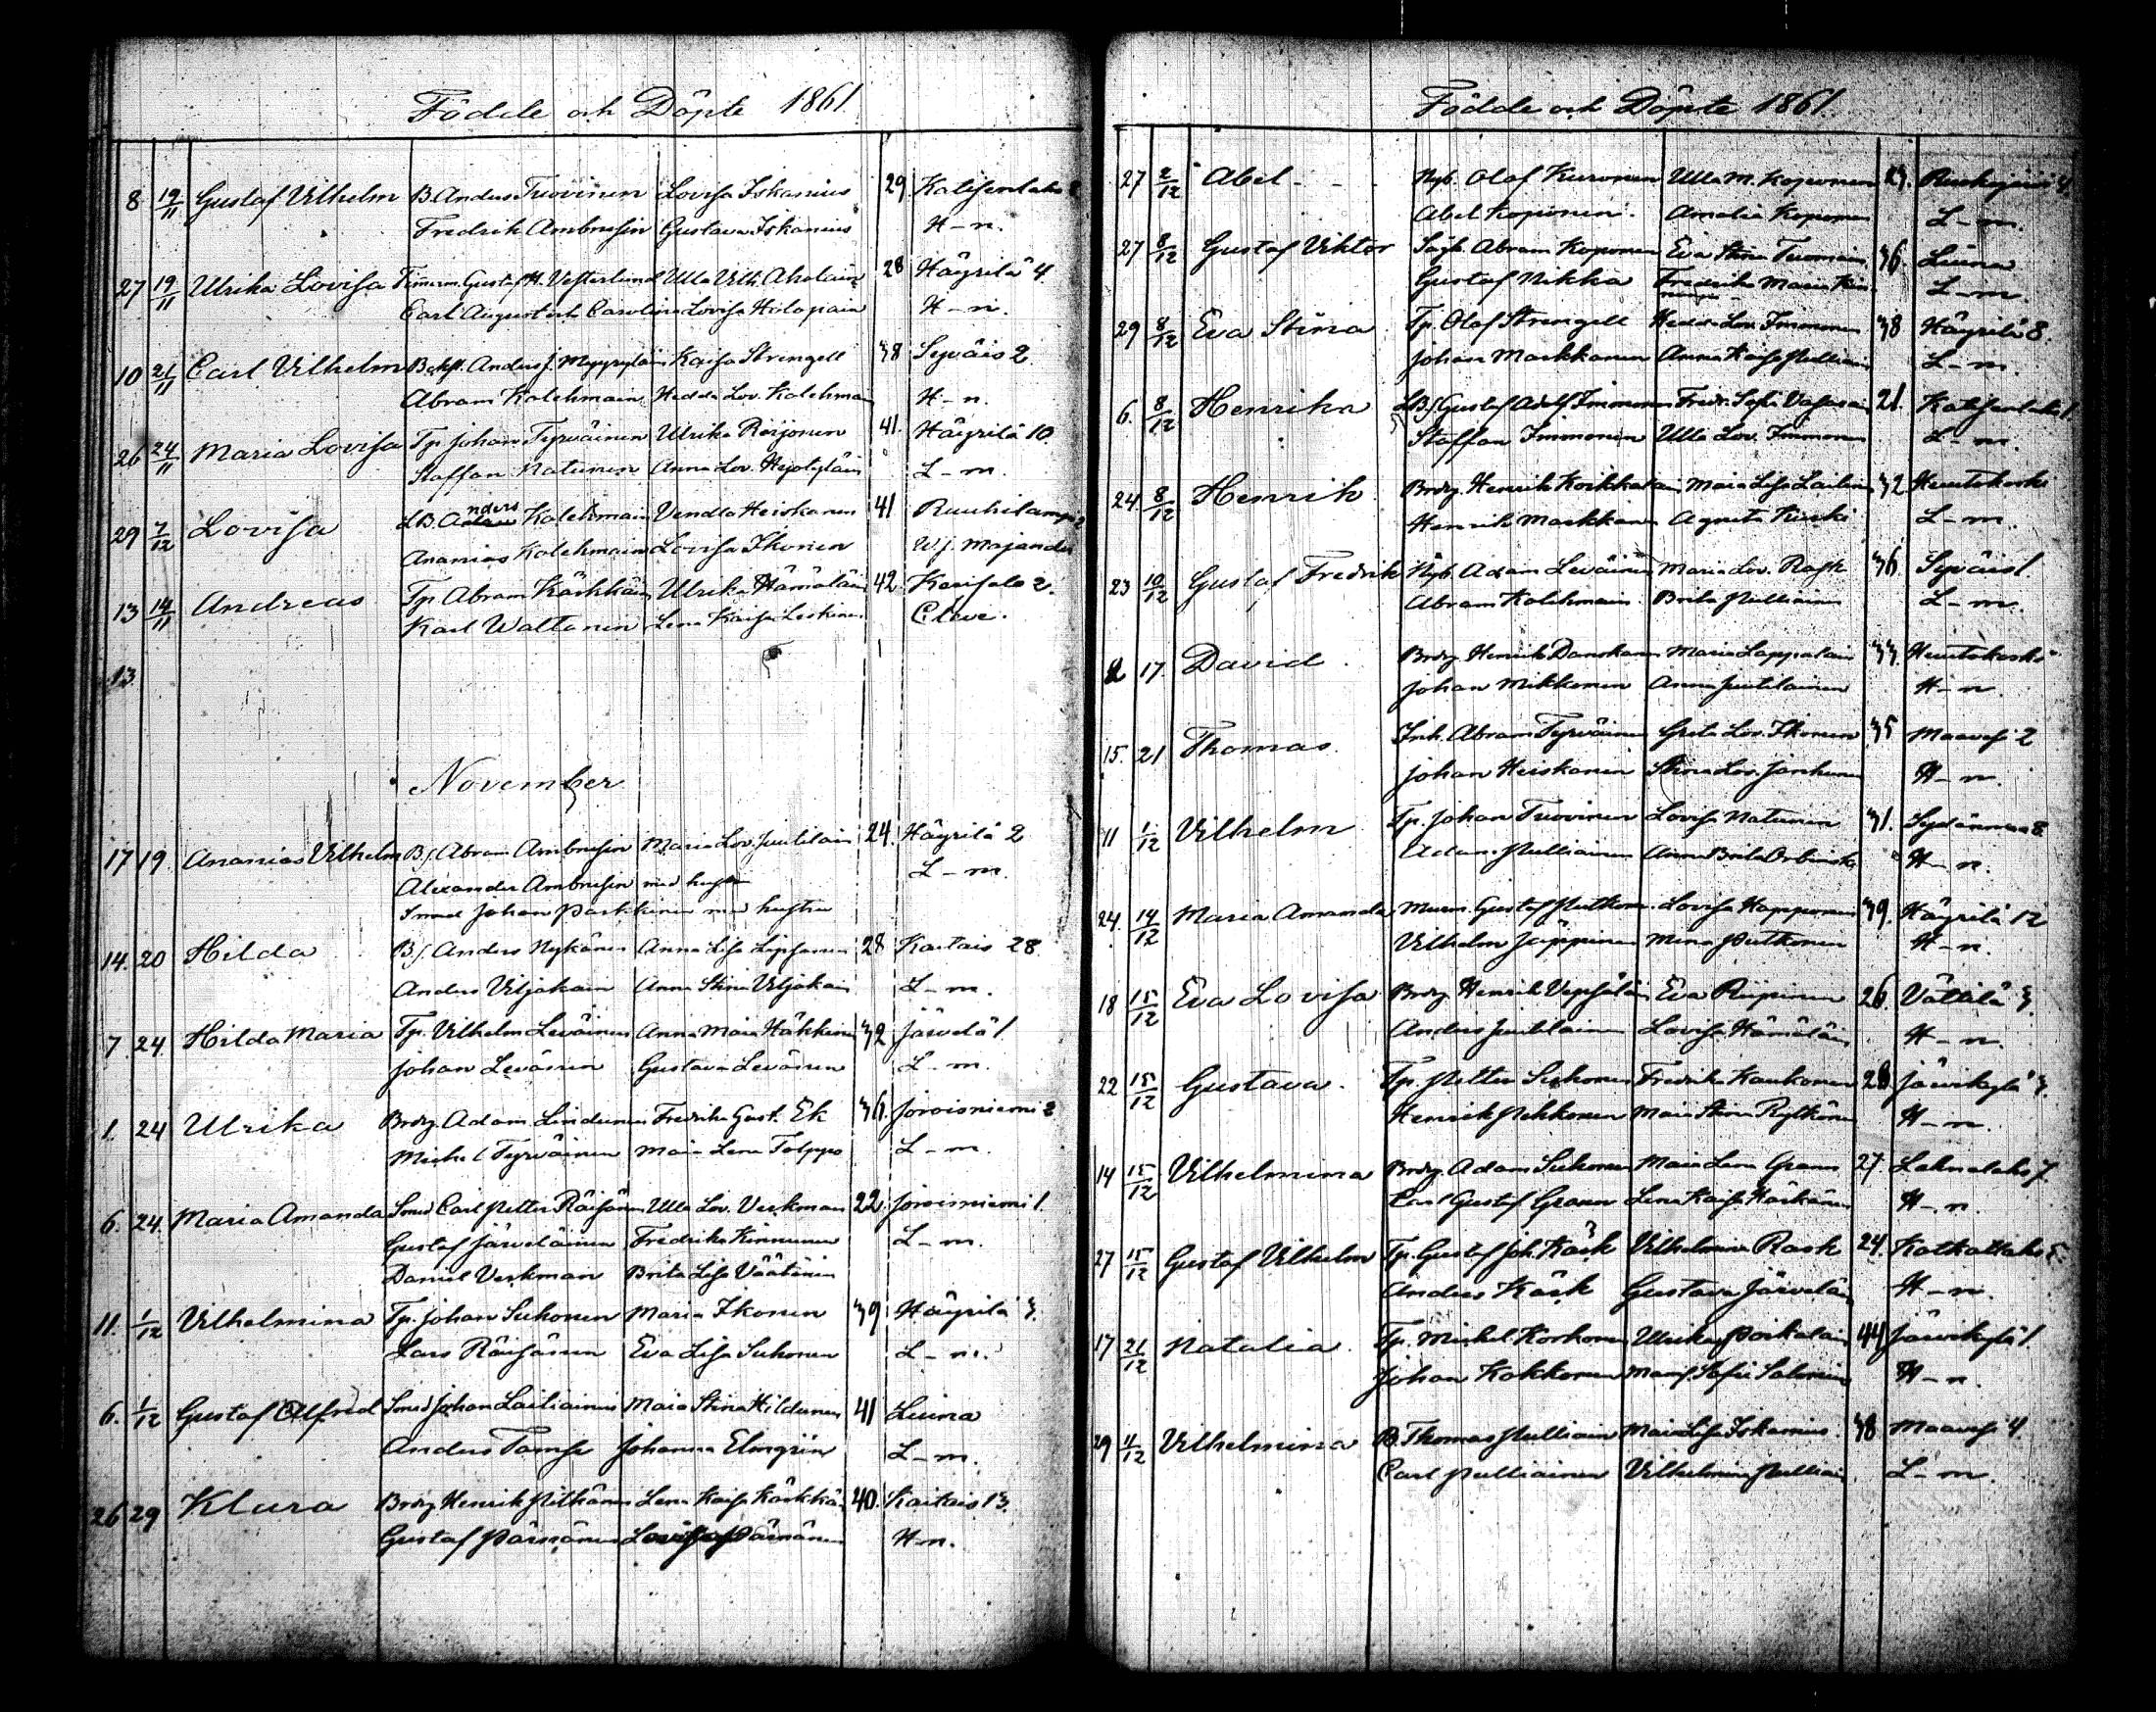 Födde och Döpte 1861.
8 19/11 Gustaf Vilhelm B. Anders Tuovinen Lovisa Iskanius 29. Katisenlaks 2
Fredrik Ambrusin Gustava Iskanius H-n.
27 19/11 Ulrika Lovisa Timerm. Gustaf H. Vesterlund Ulla Vilh. Aholain 28 Häyrilä 4.
Carl August och Carolina Lovisa Holopain H-n.
10 21/11 Carl Vilhelm Anders J. Myyryläin Kaisa Strengell 38 Syväis 2
Abram Kolehmain Hedda Lov. Kolehmain H-n.
26 24/11 Maria Lovisa Tp. Johan Tyrväinen Ulrika Reijonen 41. Häyrilä 10
Staffan Natunen Anna Lov. L-m.
29 7/12 Lovisa LB. Anders Kolehmain Vendla Heiskanen 41 Ruuhilampi
Ananias Kolehmain Lovisa Ikonen W. f. Majander
13 14/11 Andreas Tp. Abram Kärkkäin Ulrika Hämäläin 42. Kasisalo 2.
Karl Waltonen Lena Kaisa Leskinen Cleve.
13
November
17 19. Ananias Vilhelm B.f. Abram Ambrusin Maria Lov. Juutilain 24. Häyrilä 2
Alexander Ambrusin med hustru L-m.
Smed Johan Parkkinen med hustru
14. 20 Hilda B.f. Anders Nykänen Anna Lisa Lypsanen 28 Kaitais 28.
Anders Viljakain Anna Stina Viljakain L-m.
7 24. Hilda Maria Tp. Vilhelm Leväinen Anna Maria Häkkinen 32 Järvelä 1
Johan Leväinen Gustava Leväinen L-m.
1. 24 Ulrika Brdrg. Adam Lindunen Fredrika Gust. Ek 36. Joroisniemi 2
Michel Tyrväinen Maia Lena Tolppo L-m.
6. 24. Maria Amanda Smed Carl Petter Räisänen Ulla Lov. Verkman 22. Joroisniemi 1.
Gustaf Järveläinen Fredrika Kinnunen L-m.
Daniel Verkman Brita Lisa Väätänen
11. 1/12 Vilhelmina Tp. Johan Suhonen Maria Ikonen 39 Häyrilä 3.
Lars Räisänen Eva Lisa Suhonen L-m.
6. 1/12 Gustaf Alfred Smed Johan Lailiainen Maia Stina Hildunen 41 Liuna
Anders Tamse Johanna Elmgrén L-m.
26 29 Klara Brdrg Henrik Pitkänen Lena Kaisa Kärkkäi 40. Kaitais 13.
Gustaf Pärnänen Lovisa Pärnänen H-n.
Födde och Döpte 1861.
27 2/12 Abel Nyb. Olof Kuronen Ulla M. Koponen 23. 4
Abel Koponen Amalia Koponen L-m.
27 8/12 Gustaf Viktor Abram Koponen Eva Stina Tuomain 36. Liuna
Gustaf Nikka Fredrika Maria L-m.
29 8/12 Eva Stina Tp. Olof Strengell Hedda Lov. Immonen 38 Häyrilä 8.
Johan Markkanen Anna Kaisa Pulliain L-m.
6. 8/12 Henrika LBf Gustaf Adolf Immonen Fredr. Sofia 21. Katisenlaks 1.
Staffan Immonen Ulla Lov. Immonen L-m.
24. 8/12 Henrik Brdrg. Henrik Koikkalain Maria Lisa Lailiain 32 Huutokoski
Henrik Markkanen Agneta L-m.
23 10/12 Gustaf Fredrik Nyb. Adam Leväinen Maria Lov. Rask 36 Syväis 1.
Abram Kolehmain Brita Pulliainen L-m.
2 17. David Brdrg Henrik Danskanen Maria Lappalain 33. Huutokoski
Johan Mikkonen Anna Juutilainen H-n.
15. 21 Thomas Inh. Abram Tyrväinen Greta Lov. Ikonen 35 Maavesi 2
Johan Heiskanen Stina Lov. Janhunen H-n.
11 1/12 Vilhelm Tp. Johan Tuovinen Lovisa Natunen 31. Sydänmaa 8.
Adam Pulliainen Anna Brita H-n.
24. 14/12 Maria Amanda Murm. Gustaf Putkonen Lovisa Happonen 39. Häyrilä 12
Vilhelm Jäppinen Mina Putkonen H-n.
18 15/12 Eva Lovisa Brdrg Henrik Vepsäläin Eva Riipinen 26. Vättilä 3.
Anders Juutilainen Lovisa Hämäläin H-n.
22 15/12 Gustava Tp. Petter Suhonen Fredrika Kauhanen 28 Järvikylä 3.
Henrik Pehkonen Maia Stina Rytkönen H-n.
14 15/12 Vilhelmina Brdrg. Adam Suhonen Maia Lena Grann 27. Lahnalahs 7.
Carl Gustaf Grann Lena Kaisa Kärkänen H-n.
27 15/12 Gustaf Vilhelm Tp. Gustaf Joh. Käck Vilhelmina Rask 24. Kotkatlahs 5.
Anders Käck Gustava Järveläin H-n.
17 26/12 Natalia Tp. Michel Korhonen Ulrika Poikalain 44 Järvikylä 1.
Johan Kokkonen Sofia Salonen H-n.
29 4/12 Vilhelmina B. Thomas Pulliain Maia Lisa Iskanius 38 Maavesi 4.
Carl Pulliainen Vilhelmina Pulliain L-m.